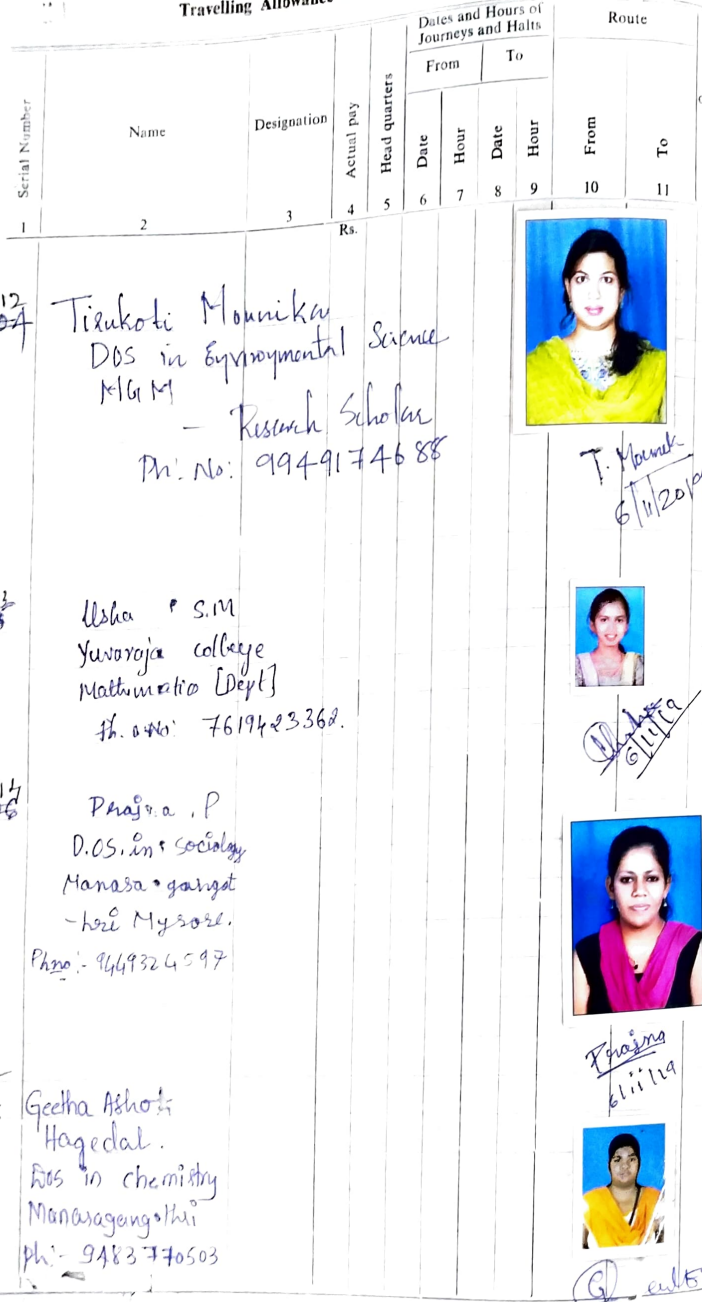 Travelling Allowance
Serial Number
Name
Designation
Actual pay
Head quarters
Dates and Hours of
Journeys and Halts
From
To
Date
Hour
Date
Hour
Route
From
To
1 2 3 4 5 6 7 8 9 10 11
Rs.
12
Tirukoti Mounika
DOS in Environmental Science
MGM
- Research Scholar
Ph: No: 9949174688
T. Mounik
6/11/2019
Usha S.M
Yuvaraja college
Mathematics [Dept]
Ph. No: 7619423362.
6/11/19
14
Prajna . P
D.OS. in sociology
Manasa gangot
-hri Mysore.
Phno:- 9449324597
Prajna
6/11/19
Geetha Ashok
Hagedal.
Dos in chemistry
Manasagangothri
Ph:- 9483770503